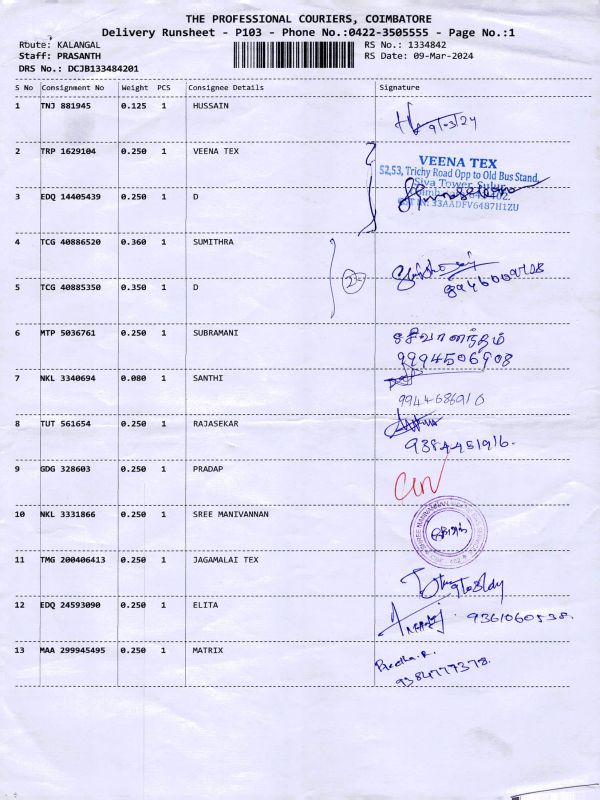 THE PROFESSIONAL COURIERS, COIMBATORE
Delivery Runsheet - P103 - Phone No.:0422-3505555 - Page No.:1
Route: KALANGAL RS No.: 1334842
Staff: PRASANTH RS Date: 09-Mar-2024
DRS No.: DCJB133484201
S No Consignment No Weight PCS Consignee Details Signature
1 TNJ 881945 0.125 1 HUSSAIN
9/03/24
2 TRP 1629104 0.250 1 VEENA TEX
VEENA TEX
52,53, Trichy Road Opp to Old Bus Stand,
Siva Tower, Sulur
3 EDQ 14405439 0.250 1 D
GST IN: 33AADFV6487H1ZU
4 TCG 40886520 0.360 1 SUMITHRA
2
5 TCG 40885350 0.350 1 D
6 MTP 5036761 0.250 1 SUBRAMANI
9994506908
7 NKL 3340694 0.080 1 SANTHI
8 TUT 561654 0.250 1 RAJASEKAR
9384451916.
9 GDG 328603 0.250 1 PRADAP
10 NKL 3331866 0.250 1 SREE MANIVANNAN
11 TMG 200406413 0.250 1 JAGAMALAI TEX
12 EDQ 24593090 0.250 1 ELITA
13 MAA 299945495 0.250 1 MATRIX
Preetha.R.
9384777378.